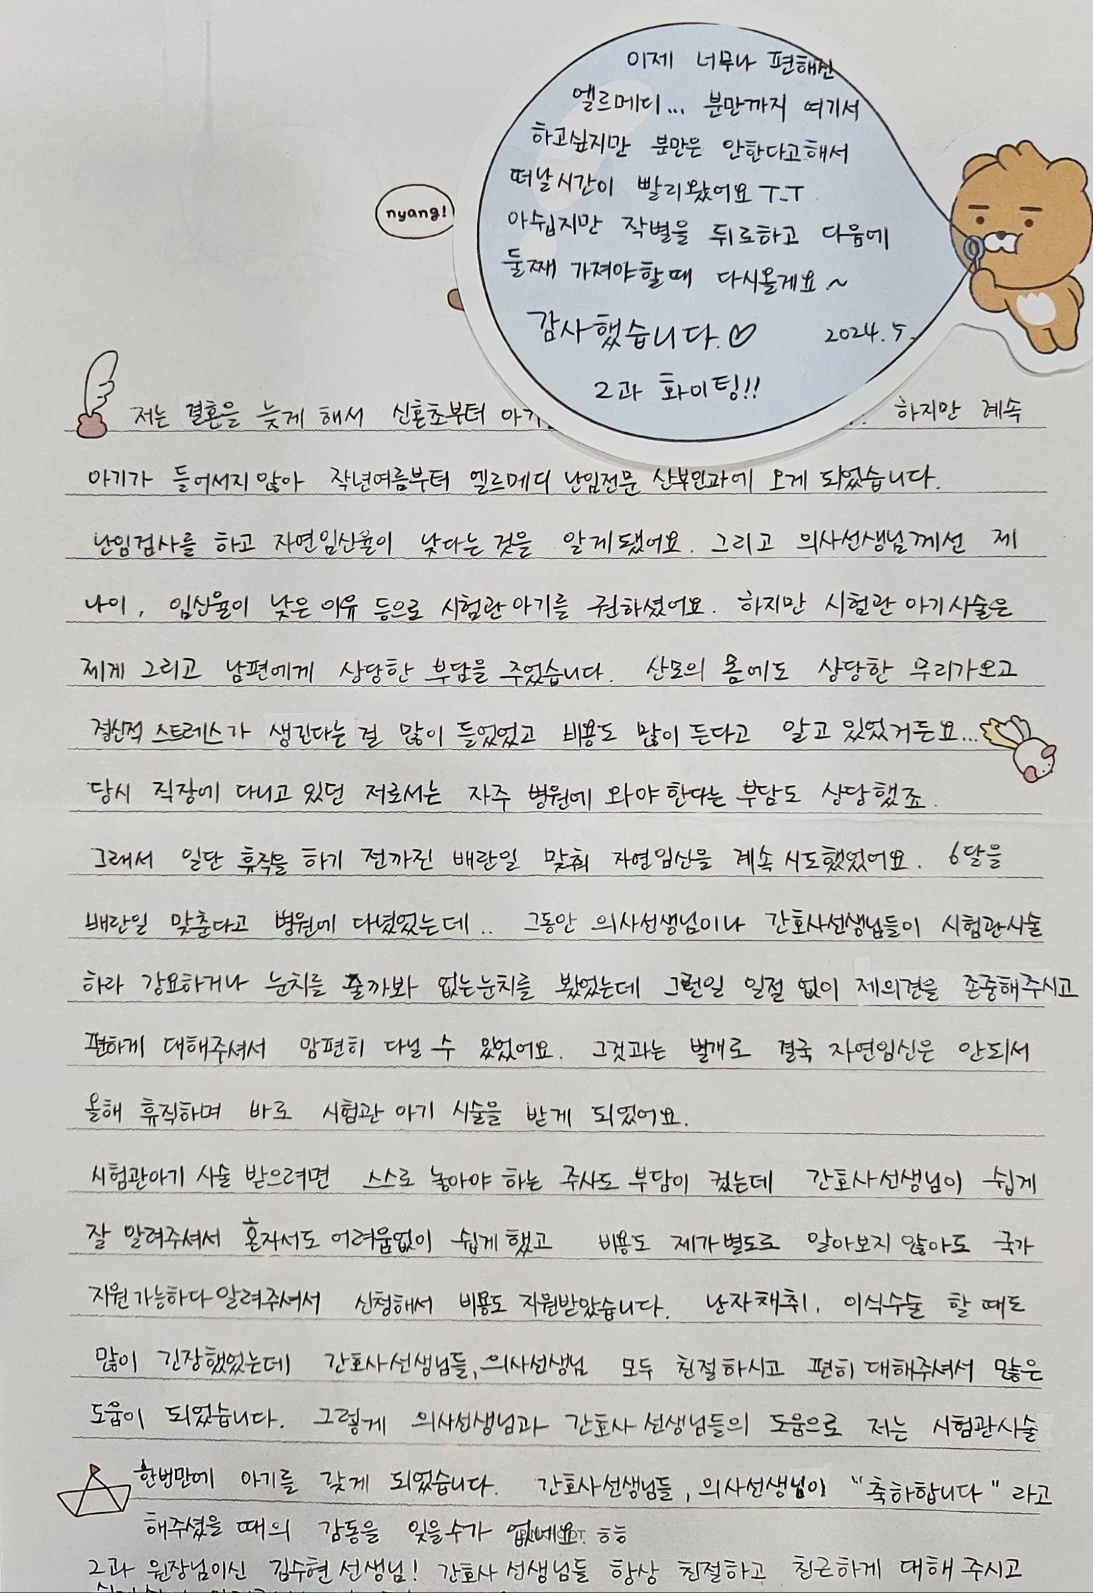 이제 너무나 편해진
엘르메디... 분만까지 여기서
하고싶지만 분만은 안한다고해서
떠날시간이 빨리왔어요 T_T
아쉽지만 작별을 뒤로하고 다음에
둘째 가져야할때 다시올게요~
감사했습니다.♡ 2024. 5.
2과 화이팅!!
nyang!
저는 결혼을 늦게 해서 신혼초부터 아기 하지만 계속
아기가 들어서지않아 작년여름부터 엘르메디 난임전문 산부인과에 오게 되었습니다.
난임검사를 하고 자연임신율이 낮다는것을 알게됐어요. 그리고 의사선생님께선 제
나이, 임신율이 낮은 이유 등으로 시험관아기를 권하셨어요. 하지만 시험관 아기시술은
제게 그리고 남편에게 상당한 부담을 주었습니다. 산모의 몸에도 상당한 무리가오고
정신적 스트레스가 생긴다는걸 많이 들었었고 비용도 많이 든다고 알고있었거든요...
당시 직장에 다니고 있던 저로서는 자주 병원에 와야한다는 부담도 상당했죠.
그래서 일단 휴직을 하기 전까진 배란일 맞춰 자연임신을 계속 시도했었어요. 6달을
배란일 맞춘다고 병원에 다녔었는데.. 그동안 의사선생님이나 간호사선생님들이 시험관시술
하라 강요하거나 눈치를 줄까봐 없는눈치를 봤었는데 그런일 일절 없이 제의견을 존중해주시고
편하게 대해주셔서 맘편히 다닐 수 있었어요. 그것과는 별개로 결국 자연임신은 안되서
올해 휴직하며 바로 시험관 아기 시술을 받게 되었어요.
시험관아기 시술 받으려면 스스로 놓아야 하는 주사도 부담이 컸는데 간호사선생님이 쉽게
잘 알려주셔서 혼자서도 어려움없이 쉽게 했고 비용도 제가 별도로 알아보지 않아도 국가
지원가능하다 알려주셔서 신청해서 비용도 지원받았습니다. 난자채취, 이식수술 할때도
많이 긴장했었는데 간호사선생님들, 의사선생님 모두 친절하시고 편히 대해주셔서 많은
도움이 되었습니다. 그렇게 의사선생님과 간호사 선생님들의 도움으로 저는 시험관시술
한번만에 아기를 갖게 되었습니다. 간호사선생님들, 의사선생님이 "축하합니다" 라고
해주셨을 때의 감동을 잊을수가 없네요 ㅎㅎ
2과 원장님이신 김수현 선생님! 간호사 선생님들 항상 친절하고 친근하게 대해 주시고